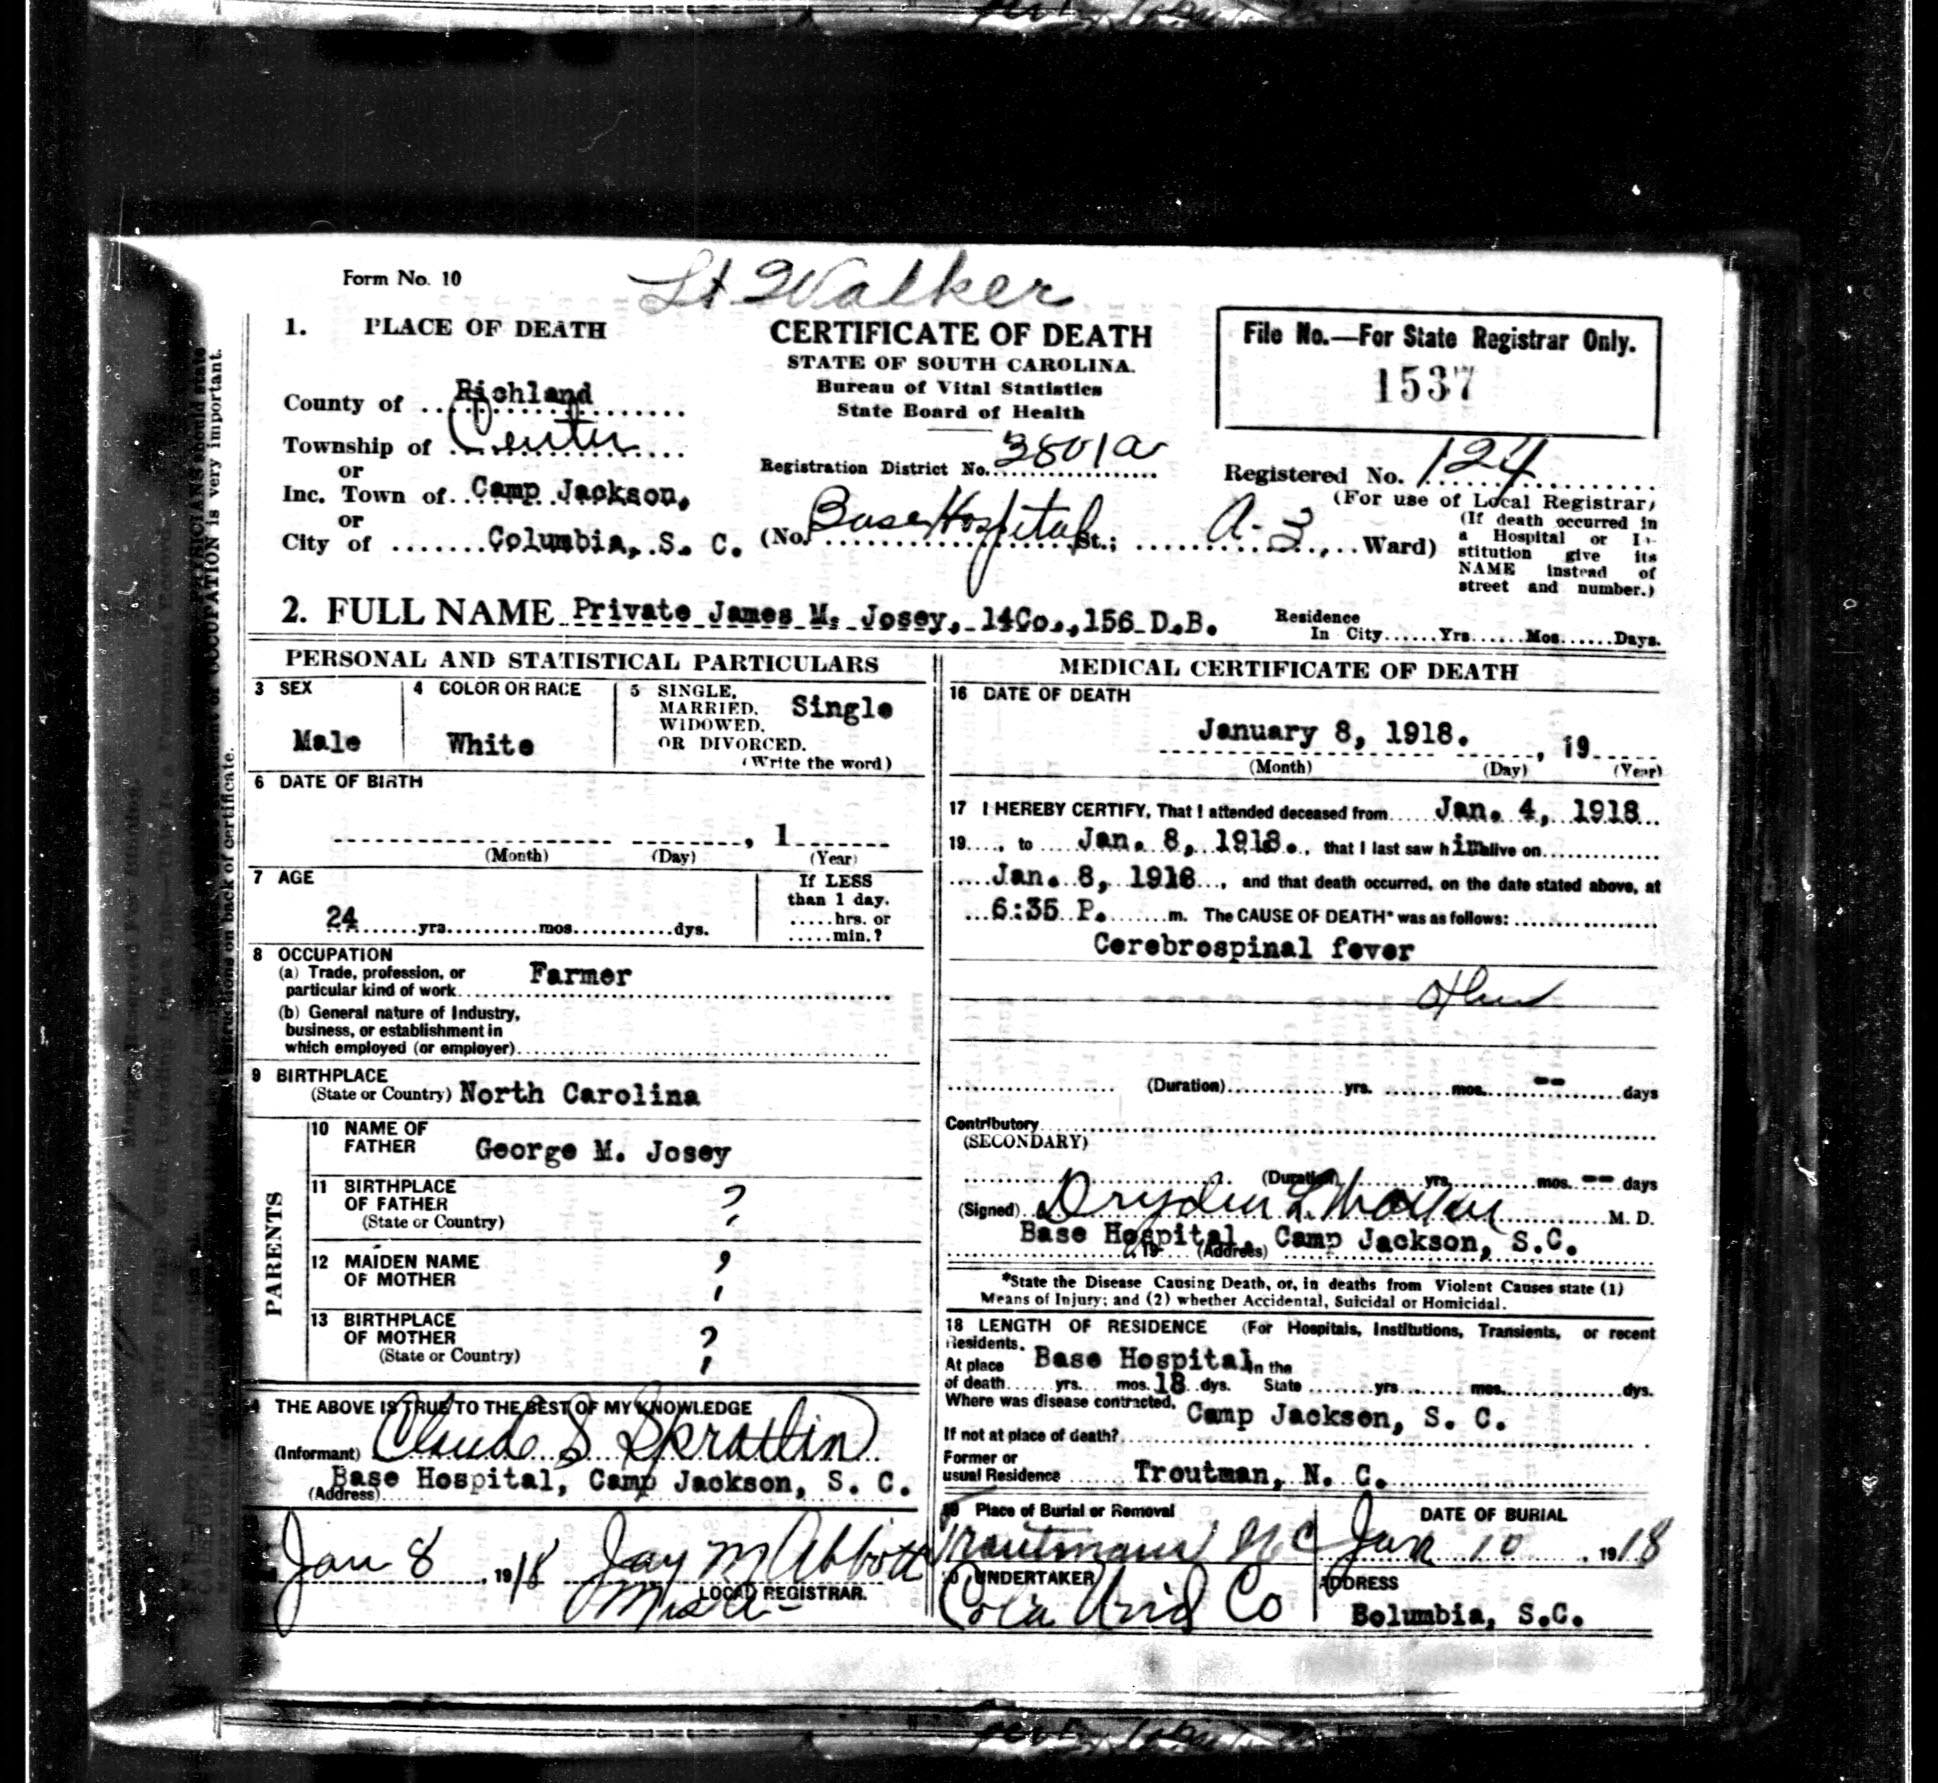 Form No. 10
Lt Walker
1. PLACE OF DEATH
County of Richland
Township of Center
or
Inc. Town of Camp Jackson,
or
City of Columbia, S. C.
CERTIFICATE OF DEATH
STATE OF SOUTH CAROLINA.
Bureau of Vital Statistics
State Board of Health
Registration District No. 3801a
(No. Base Hospital St.; A-3 Ward)
File No.—For State Registrar Only.
1537
Registered No. 124
(For use of Local Registrar)
(If death occurred in
a Hospital or In-
stitution give its
NAME instead of
street and number.)
2. FULL NAME Private James M. Josey, 14Co., 156 D.B.
Residence
In City......Yrs......Mos......Days.
PERSONAL AND STATISTICAL PARTICULARS
3 SEX
Male
4 COLOR OR RACE
White
5 SINGLE,
MARRIED,
WIDOWED,
OR DIVORCED.
(Write the word)
Single
6 DATE OF BIRTH
, 1
(Month) (Day) (Year)
7 AGE
24 yrs. mos. dys.
If LESS
than 1 day.
hrs. or
min.?
8 OCCUPATION
(a) Trade, profession, or
particular kind of work
Farmer
(b) General nature of Industry,
business, or establishment in
which employed (or employer)
9 BIRTHPLACE
(State or Country) North Carolina
PARENTS
10 NAME OF
FATHER
George M. Josey
11 BIRTHPLACE
OF FATHER
(State or Country)
?
12 MAIDEN NAME
OF MOTHER
?
13 BIRTHPLACE
OF MOTHER
(State or Country)
?
THE ABOVE IS TRUE TO THE BEST OF MY KNOWLEDGE
(Informant) Claude S Spratlin
Base Hospital, Camp Jackson, S. C.
(Address)
Jan 8, 1918 Jay M Abbott
LOCAL REGISTRAR.
MEDICAL CERTIFICATE OF DEATH
16 DATE OF DEATH
January 8, 1918. , 19
(Month) (Day) (Year)
17 I HEREBY CERTIFY, That I attended deceased from Jan. 4, 1918
19...., to Jan. 8, 1918., that I last saw him alive on
Jan. 8, 1918, and that death occurred, on the date stated above, at
6:35 P. m. The CAUSE OF DEATH* was as follows:
Cerebrospinal fever
(Duration) yrs. mos. -- days
Contributory
(SECONDARY)
(Duration) yrs. mos. -- days
(Signed) Dryden L. M. D.
Base Hospital, Camp Jackson, S.C.
19 (Address)
*State the Disease Causing Death, or, in deaths from Violent Causes state (1)
Means of Injury; and (2) whether Accidental, Suicidal or Homicidal.
18 LENGTH OF RESIDENCE (For Hospitals, Institutions, Transients, or recent
Residents.
At place Base Hospital In the
of death yrs. mos. 18 dys. State yrs mos. dys.
Where was disease contracted, Camp Jackson, S. C.
If not at place of death?
Former or
usual Residence Troutman, N. C.
19 Place of Burial or Removal
Troutman NC
DATE OF BURIAL
Jan 10, 1918
UNDERTAKER
Cola Und Co
ADDRESS
Bolumbia, S.C.